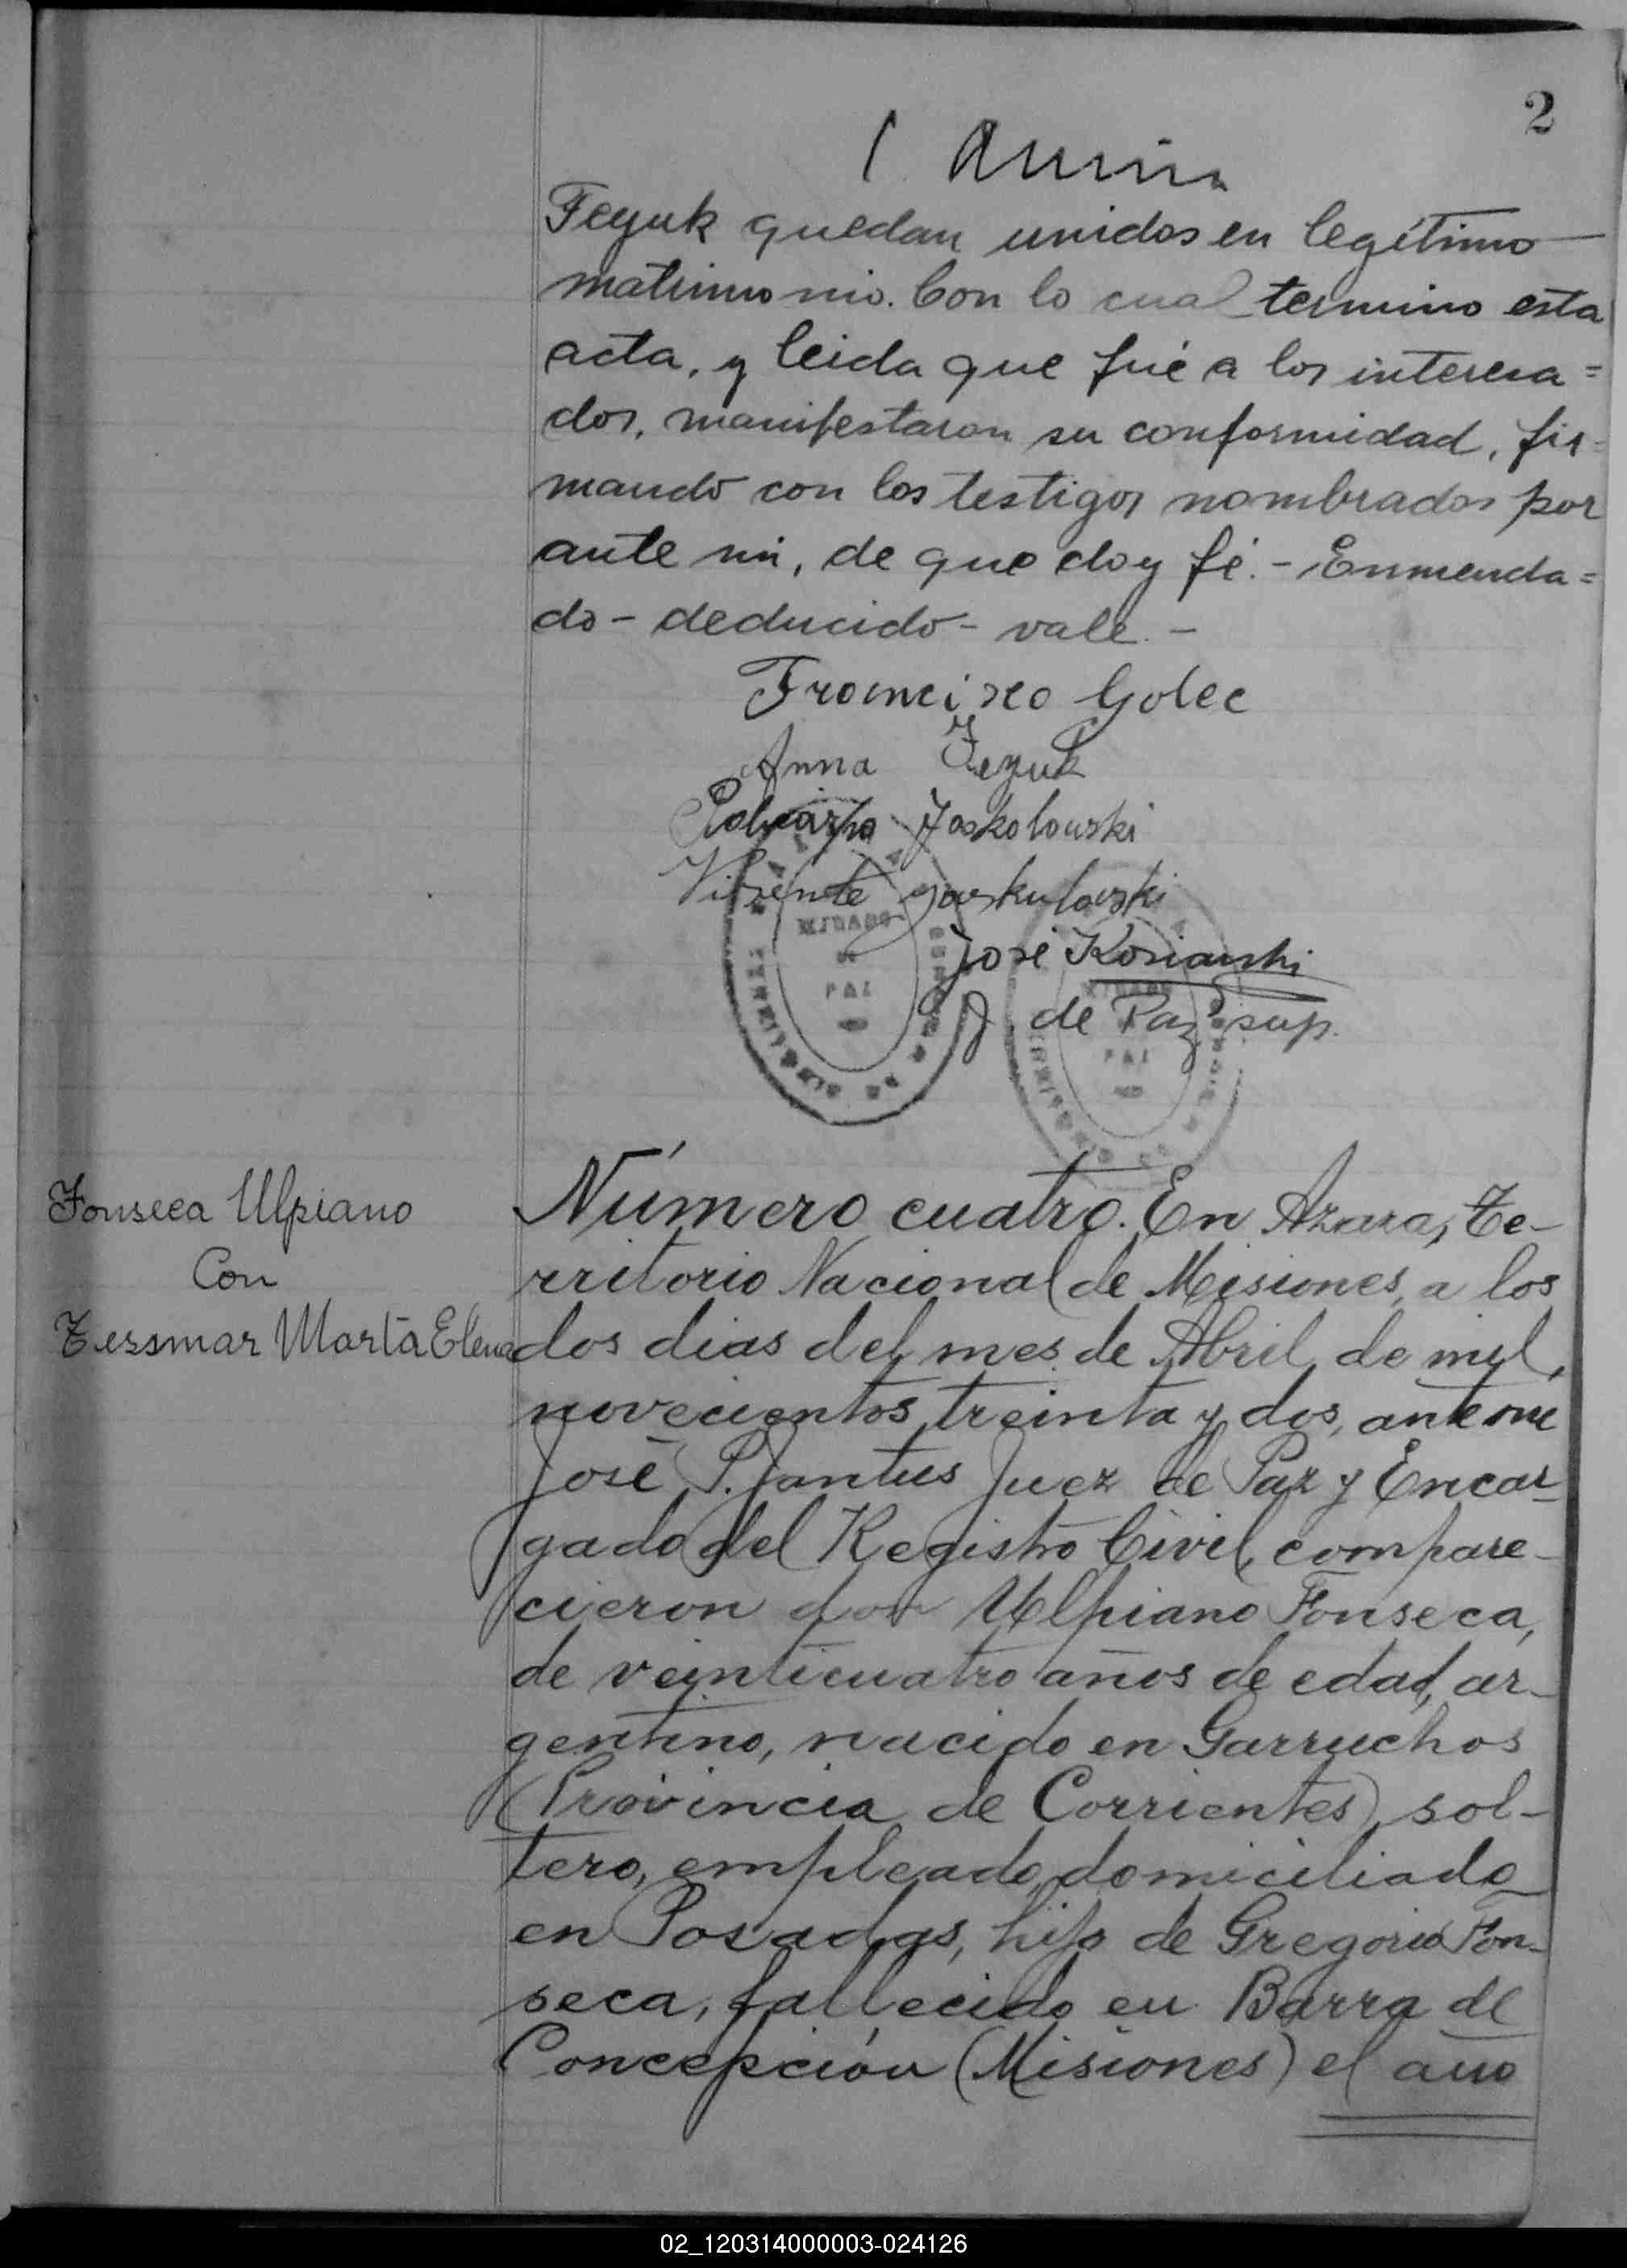 2
Feyuk quedan unidos en legítimo
matrimonio. Con lo cual termino esta
acta, y leida que fué a los interesa=
dos, manifestaron su conformidad, fir-
mando con los testigos nombrados por
ante mi, de que doy fé. - Enmenda=
do - deducido - vale. -
Francisco Golec
Anna Feyuk
Joskolowski
Visente Joskulovski
José Kosianski
J. de Paz sup.
Fonseca Ulpiano
Con
Tessmar Marta Elena
Número cuatro. En Azara, Te-
rritorio Nacional de Misiones, a los
dos dias del mes de Abril de mil
novecientos treinta y dos, ante me
José P. Jantus Juez de Paz y Encar-
gado del Registro Civil, compare-
cieron don Ulpiano Fonseca,
de veinticuatro años de edad, ar-
gentino, nacido en Garruchos
(Provincia de Corrientes) sol-
tero, empleado, domiciliado
en Posadas, hijo de Gregorio Fon-
seca, fallecido en Barra de
Concepción (Misiones) el año
02_120314000003-024126